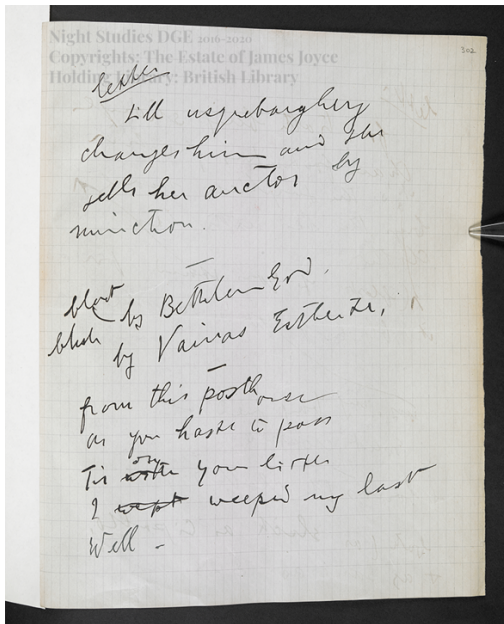 Night Studies DGE 2016-2020
Copyrights: The Estate of James Joyce
Holding Library: British Library
302
letter
till usquebaugher
changes him and she
sells her auctor by
minction.
blout
blush by Bethlem God,
by Vainas Estherze,
from this posthouse
as you haste to pass
Tis on your litter
I wept weeped my last
Well -